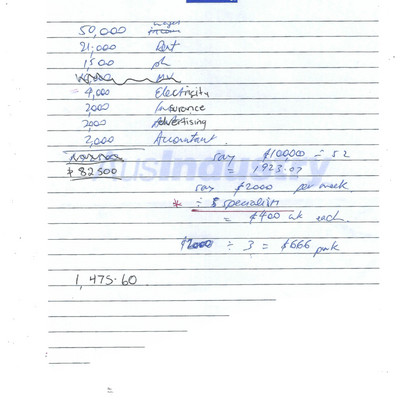 50,000 wages
21,000 Rent
1,500 ph
4,000 Electricity
2000 Insurance
2000 Advertising
2,000 Accountant.
$82500
say $100,000 ÷ 52
= 1923.07
say $2000 per week.
* ÷ 5 specialism
= $400 wk each.
$2000 ÷ 3 = $666 pwk
1,475.60
AusIndustry